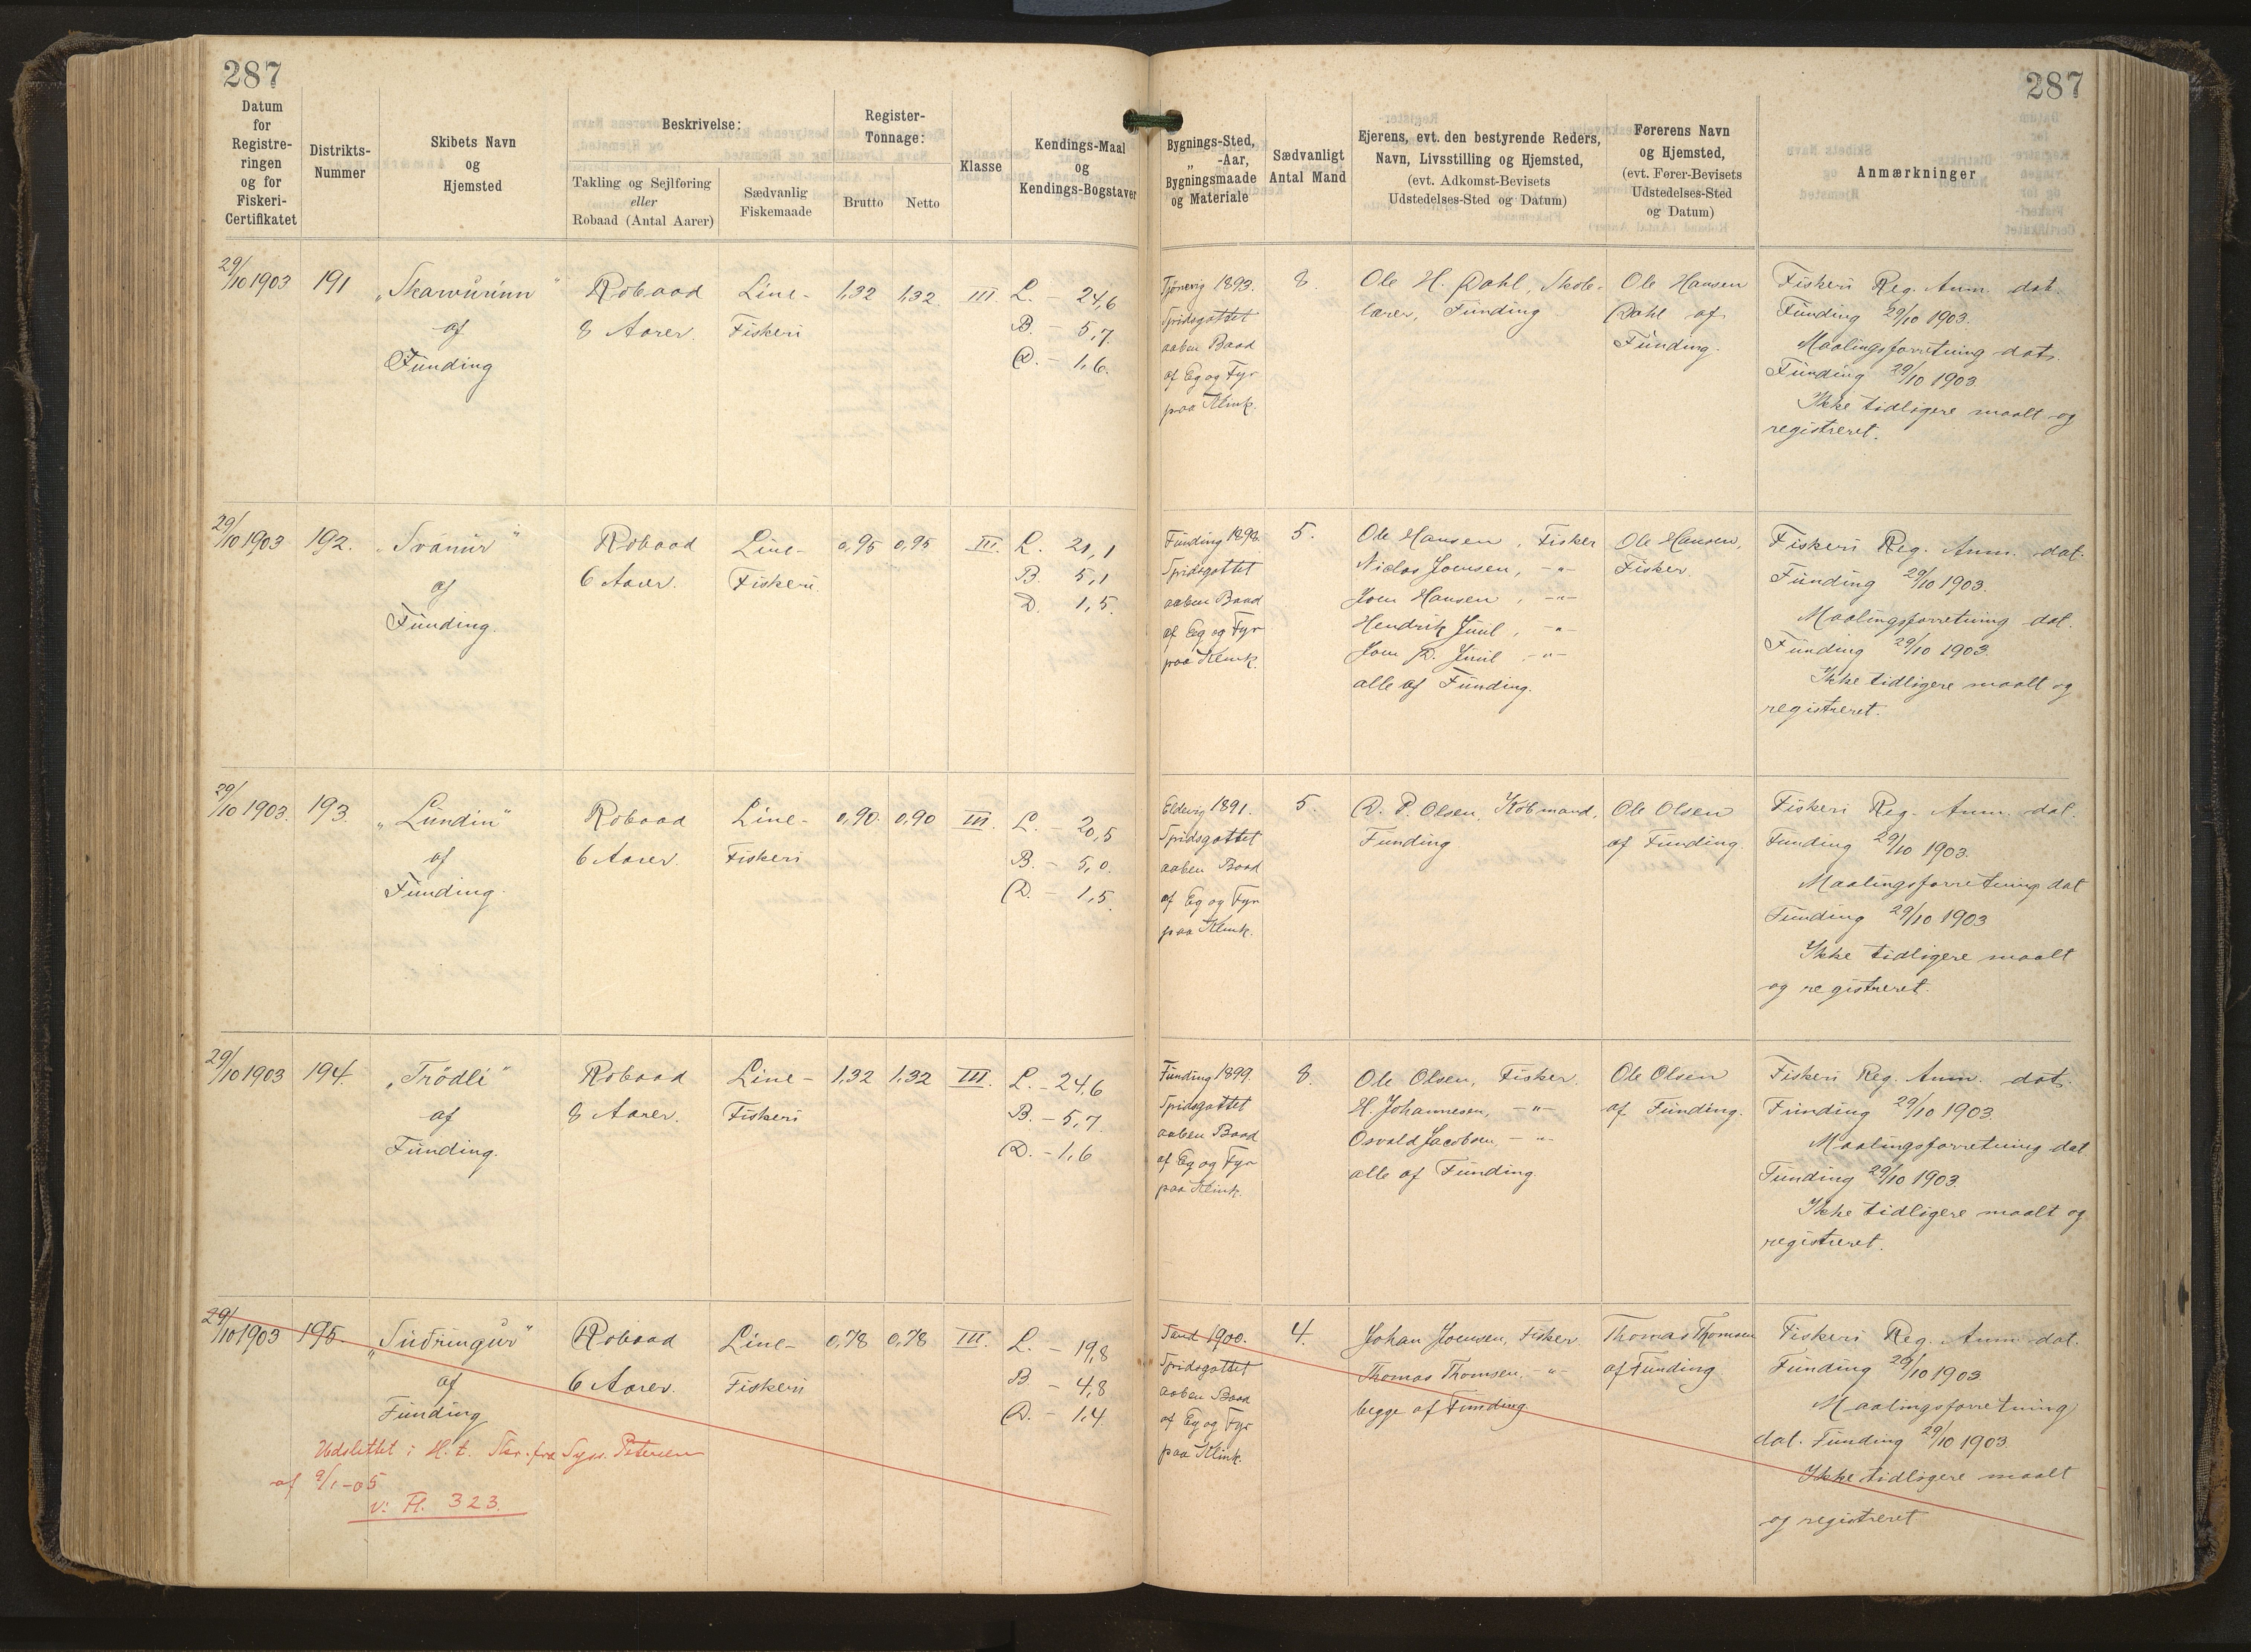 287
287
Datum for Registreringen og for Fiskeri-Certifikatet
Distrikts-Nummer
Skibets Navn og Hjemsted
Beskrivelse:
Takling og Sejlføring eller Robaad (Antal Aarer)
Sædvanlig Fiskemaade
Register-Tonnage:
Brutto
Netto
Klasse
Kendings-Maal og Kendings-Bogstaver
Bygnings-Sted, „ -Aar, Bygningsmaade og Materiale
Sædvanligt Antal Mand
Ejerens, evt. den bestyrende Reders, Navn, Livsstilling og Hjemsted, (evt. Adkomst-Bevisets Udstedelses-Sted og Datum)
Førerens Navn og Hjemsted, (evt. Fører-Bevisets Udstedelses-Sted og Datum)
Anmærkninger
29/10 1903 191 Robaad Line- 1,32 1,32 III. L. - 24,6
af 8 Aarer. Fiskeri B. - 5,7.
Funding D. - 1,6.
Tjørnevig 1893. 8. Ole H. Dahl, Skole- Ole Hansen Fiskeri Reg. Anm. dat.
Spidsgattet lærer, Funding Dahl af Funding 29/10 1903.
aaben Baad Funding. Maalingsforretning dat.
af Eg og Fyr Funding 29/10 1903.
paa Klink. Ikke tidligere maalt og
registreret.
29/10 1903 192. „Svanur" Robaad Line- 0,95 0,95 III. L. 21,1
af 6 Aarer. Fiskeri. B. 5,1
Funding. D. 1,5.
Funding 1898. 5. Ole Hansen, Fisker Ole Hansen, Fiskeri Reg. Anm. dat.
Spidsgattet Niclas Joensen, -"- Fisker Funding 29/10 1903.
aaben Baad Joen Hansen, -"- Maalingsforretning dat.
af Eg og Fyr Hendrik Juul, -"- Funding 29/10 1903.
paa Klink. Joen D. Juul -"- Ikke tidligere maalt og
alle af Funding. registreret.
29/10 1903. 193. „Lundin" Robaad Line- 0,90. 0,90 III. L. - 20,5
af 6 Aarer. Fiskeri B. - 5,0.
Funding. D. - 1,5.
Eldevig 1891. 5. D. P. Olsen, Købmand, Ole Olsen Fiskeri Reg. Anm. dat.
Spidsgattet Funding af Funding. Funding 29/10 1903.
aaben Baad Maalingsforretning dat
af Eg og Fyr Funding 29/10 1903
paa Klink. Ikke tidligere maalt
og registreret.
29/10 1903 194. „Trödli" Robaad Line- 1,32 1,32 III. L. - 24,6
af 8 Aarer. Fiskeri B. - 5,7.
Funding. D. - 1,6
Funding 1899. 8. Ole Olsen, Fisker. Ole Olsen Fiskeri Reg. Anm. dat.
Spidsgattet H. Johannesen, -"- af Funding. Funding 29/10 1903.
aaben Baad Osvald Jacobsen, -"- Maalingsforretning dat
af Eg og Fyr alle af Funding. Funding 29/10 1903.
paa Klink. Ikke tidligere maalt og
registreret.
29/10 1903 195. „Suðringur" Robaad Line- 0,78 0,78 III. L. - 19,8
af 6 Aarer. Fiskeri B. - 4,8
Funding D. - 1,4.
Udslettet i H. t. Skr. fra Sysl. Petersen
af 9/1-05
v: Fl. 323.
Sand 1900. 4. Johan Joensen, Fisker. Thomas Thomsen Fiskeri Reg. Anm dat.
Spidsgattet Thomas Thomsen, -"- af Funding Funding 29/10 1903
aaben Baad begge af Funding. Maalingsforretning
af Eg og Fyr dat. Funding 29/10 1903.
paa Klink. Ikke tidligere maalt
og registreret